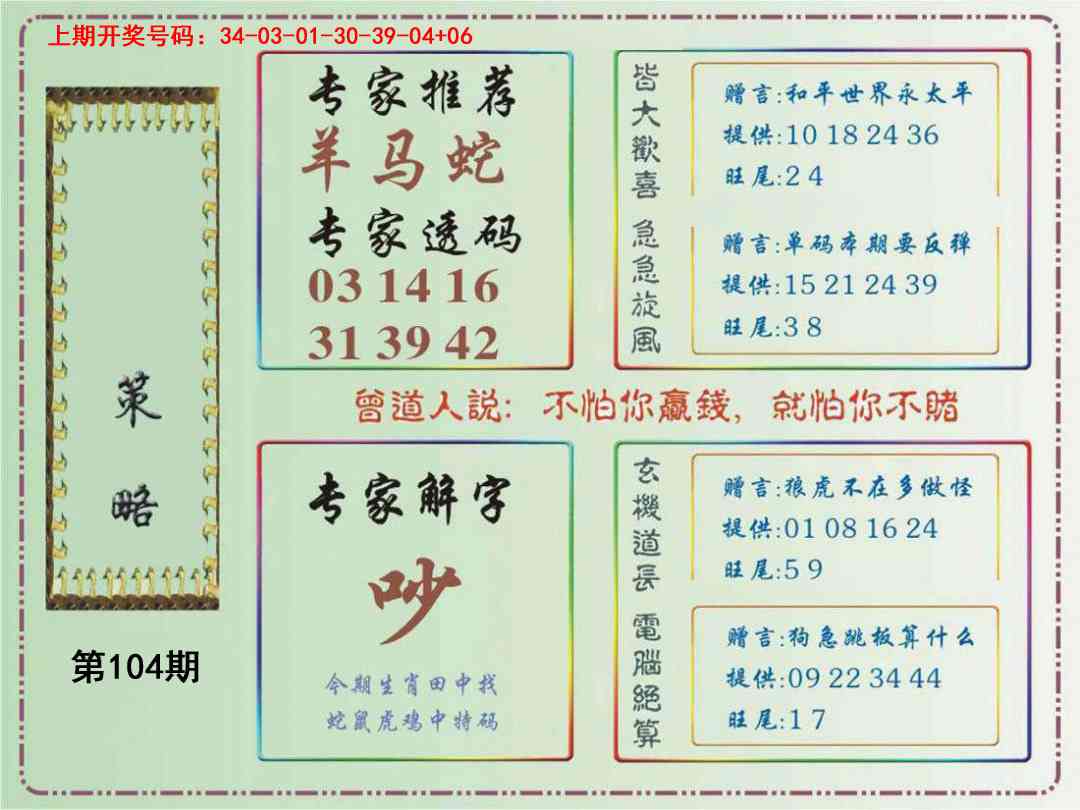 上期开奖号码：34-03-01-30-39-04+06
策
略
第104期
专家推荐
羊马蛇
专家透码
03 14 16
31 39 42
皆大歡喜
赠言:和平世界永太平
提供:10 18 24 36
旺尾:2 4
急急旋風
赠言:单码本期要反弹
提供:15 21 24 39
旺尾:3 8
曾道人説：不怕你赢錢，就怕你不賭
专家解字
吵
今期生肖田中找
蛇鼠虎鸡中特码
玄機道長
赠言:狼虎不在多做怪
提供:01 08 16 24
旺尾:5 9
電腦絕算
赠言:狗急跳板算什么
提供:09 22 34 44
旺尾:1 7